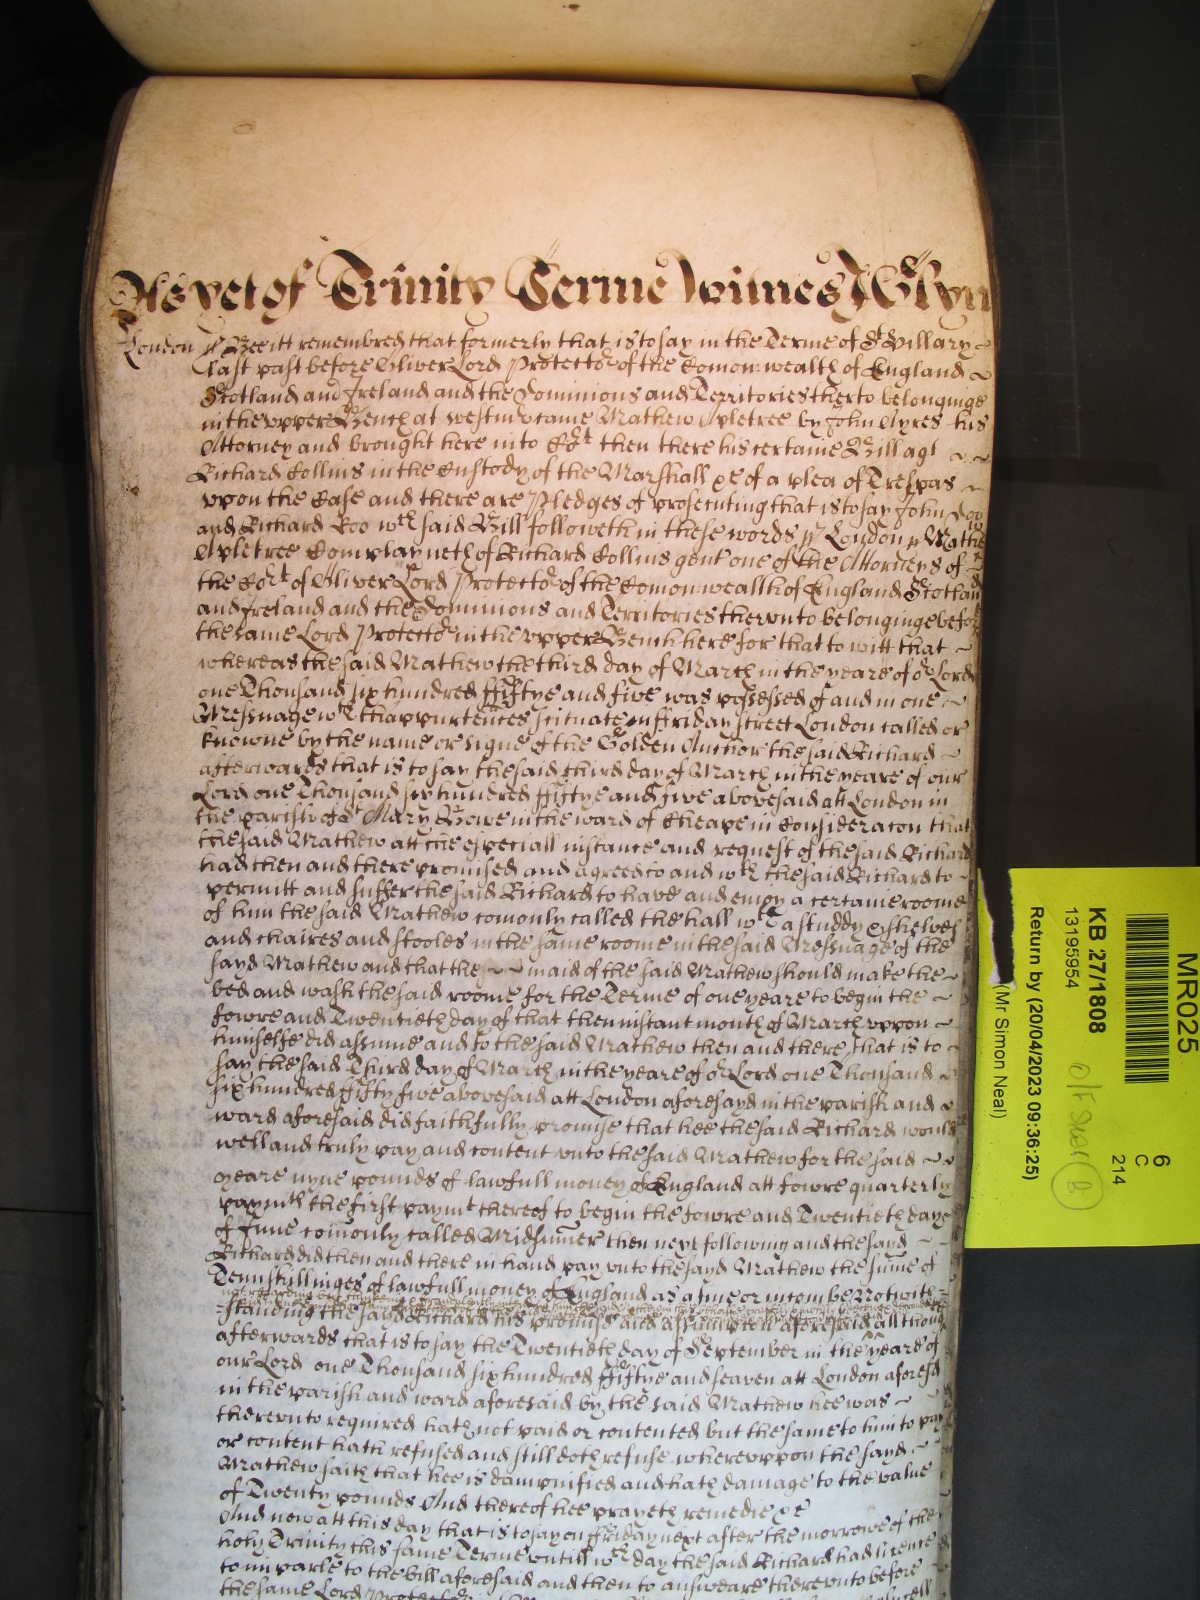 As yet of Trinity Terme Witnes J Glyn
London ss Bee itt remembred that formerly that is to say in the Terme of St Hillary
last past before Oliver Lord Protector of the Comon: wealth of England
Scotland and Ireland and the Dominions and Territories therto belonginge
in the upper Bench at Westmr came Mathew Apletree by John Ayres his
Attorney and brought here into Cort then there his certaine Bill agt
Richard Collins in the Custody of the Marshall &c of a plea of Trespas
upon the Case and there are Pledges of prosecuting that is to say John Doo
and Richard Roo wch said Bill followeth in these words ss London ss Mathew
Apletree Complayneth of Richard Collins gent one of the Attorneys of
the Cort of Oliver Lord Protector of the Comonwealth of England Scotland
and Ireland and the Dominions and Territories therunto belonginge before
the same Lord Protector in the upper Bench here for that to witt that
whereas the said Mathew the third day of March in the yeare of or Lord
one Thousand six hundred ffiftye and five was possessed of and in one
Messuage wth thappurtences scituate in ffriday street London called or
knowne by the name or signe of the Golden Anchor the said Richard
afterwards that is to say the said third day of March in the yeare of our
Lord one Thousand six hundred ffiftye and five abovesaid att London in
the parish of St Mary Bowe in the ward of Cheape in Consideracon that
the said Mathew att the especiall instance and request of the said Richard
had then and there promised and agreed to and wth the said Richard to
permitt and suffer the said Richard to have and enjoy a certaine roome
of him the said Mathew comonly called the hall wth a studdy & shelves
and chaires and stooles in the same roome in the said Messuage of the
sayd Mathew and that the maid of the said Mathew should make the
bed and wash the said roome for the Terme of one yeare to begin the
fowre and Twentieth day of that then instant month of March uppon
himselfe did assume and to the said Mathew then and there that is to
say the said Third day of March in the yeare of or Lord one Thousand
six hundred ffifty five abovesaid att London aforesayd in the parish and
ward aforesaid did faithfully promise that hee the said Richard would
well and truly pay and content unto the said Mathew for the said
yeare nyne pounds of lawfull money of England att fowre quarterly
paymts the first paymt thereof to begin the fowre and Twentieth daye
of June comonly called Midsumer then next following and the sayd
Richard did then and there in hand pay unto the sayd Mathew the sume of
Tenn shillinges of lawfull money of England as a fine or incombe Notwith
standing the sayd Richard his promise and assumption aforesaid all though
afterwards that is to say the Twentieth day of September in the yeare of
our Lord one Thousand six hundred ffiftye and seaven att London aforesd
in the parish and ward aforesaid by the said Mathew hee was
therunto required hath not paid or contented but the same to him to pay
or content hath refused and still doth refuse wherupon the sayd
Mathew saith that hee is dampnified and hath damage to the value
of Twenty pounds And thereof hee prayeth remedie &c
And now att this day that is to say on ffriday next after the morrowe of the
holy Trinity this same Terme untill wch day the said Richard had licence
to imparle to the bill aforesaid and then to answeare therunto before
the same Lord Protector
MR025
6
C
214
KB 27/1808
13195954
Return by (20/04/2023 09:36:25)
(Mr Simon Neal)